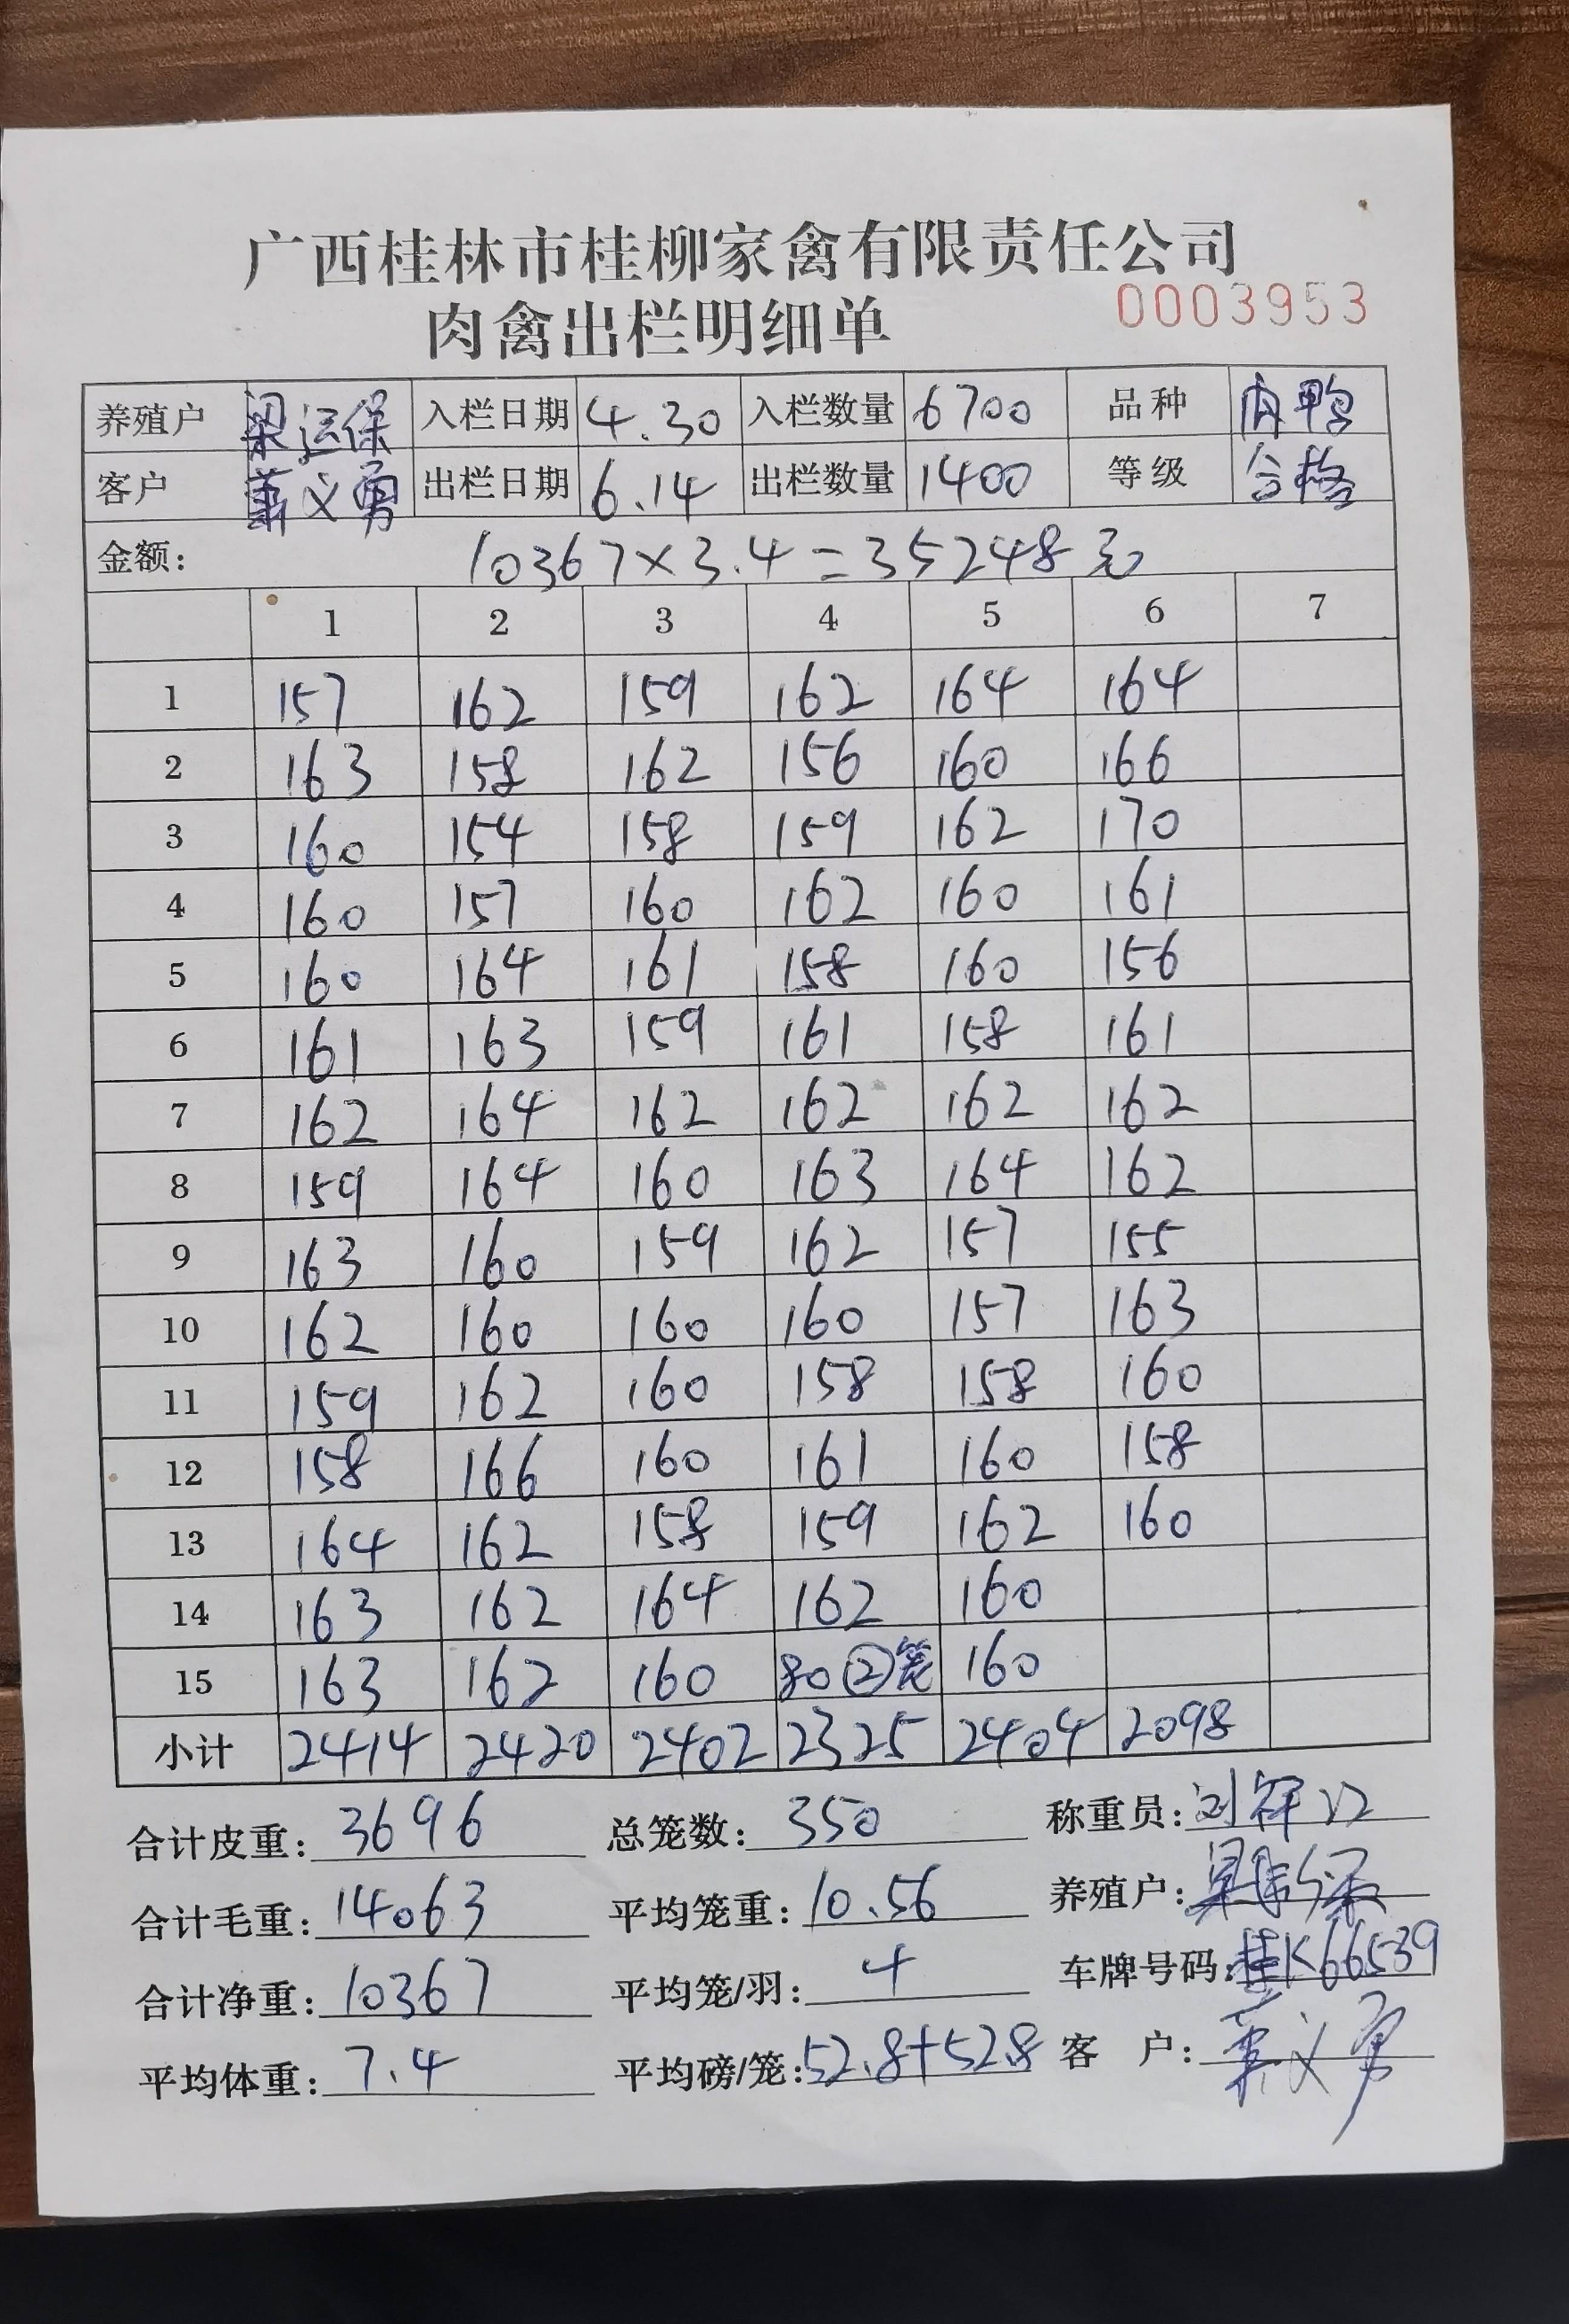 广西桂林市桂柳家禽有限责任公司
肉禽出栏明细单 0003953
养殖户 梁运保 入栏日期 4.30 入栏数量 6700 品种 肉鸭
客户 萧义勇 出栏日期 6.14 出栏数量 1400 等级 合格
金额: 10367×3.4=35248元
1 2 3 4 5 6 7
1 157 162 159 162 164 164
2 163 158 162 156 160 166
3 160 154 158 159 162 170
4 160 157 160 162 160 161
5 160 164 161 158 160 156
6 161 163 159 161 158 161
7 162 164 162 162 162 162
8 159 164 160 163 164 162
9 163 160 159 162 157 155
10 162 160 160 160 157 163
11 159 162 160 158 158 160
12 158 166 160 161 160 158
13 164 162 158 159 162 160
14 163 162 164 162 160
15 163 162 160 80②笼 160
小计 2414 2420 2402 2325 2404 2098
合计皮重: 3696 总笼数: 350 称重员: 刘祥
合计毛重: 14063 平均笼重: 10.56 养殖户:
合计净重: 10367 平均笼/羽: 4 车牌号码: 桂K66539
平均体重: 7.4 平均磅/笼: 52.8+52.8 客 户: 萧义勇